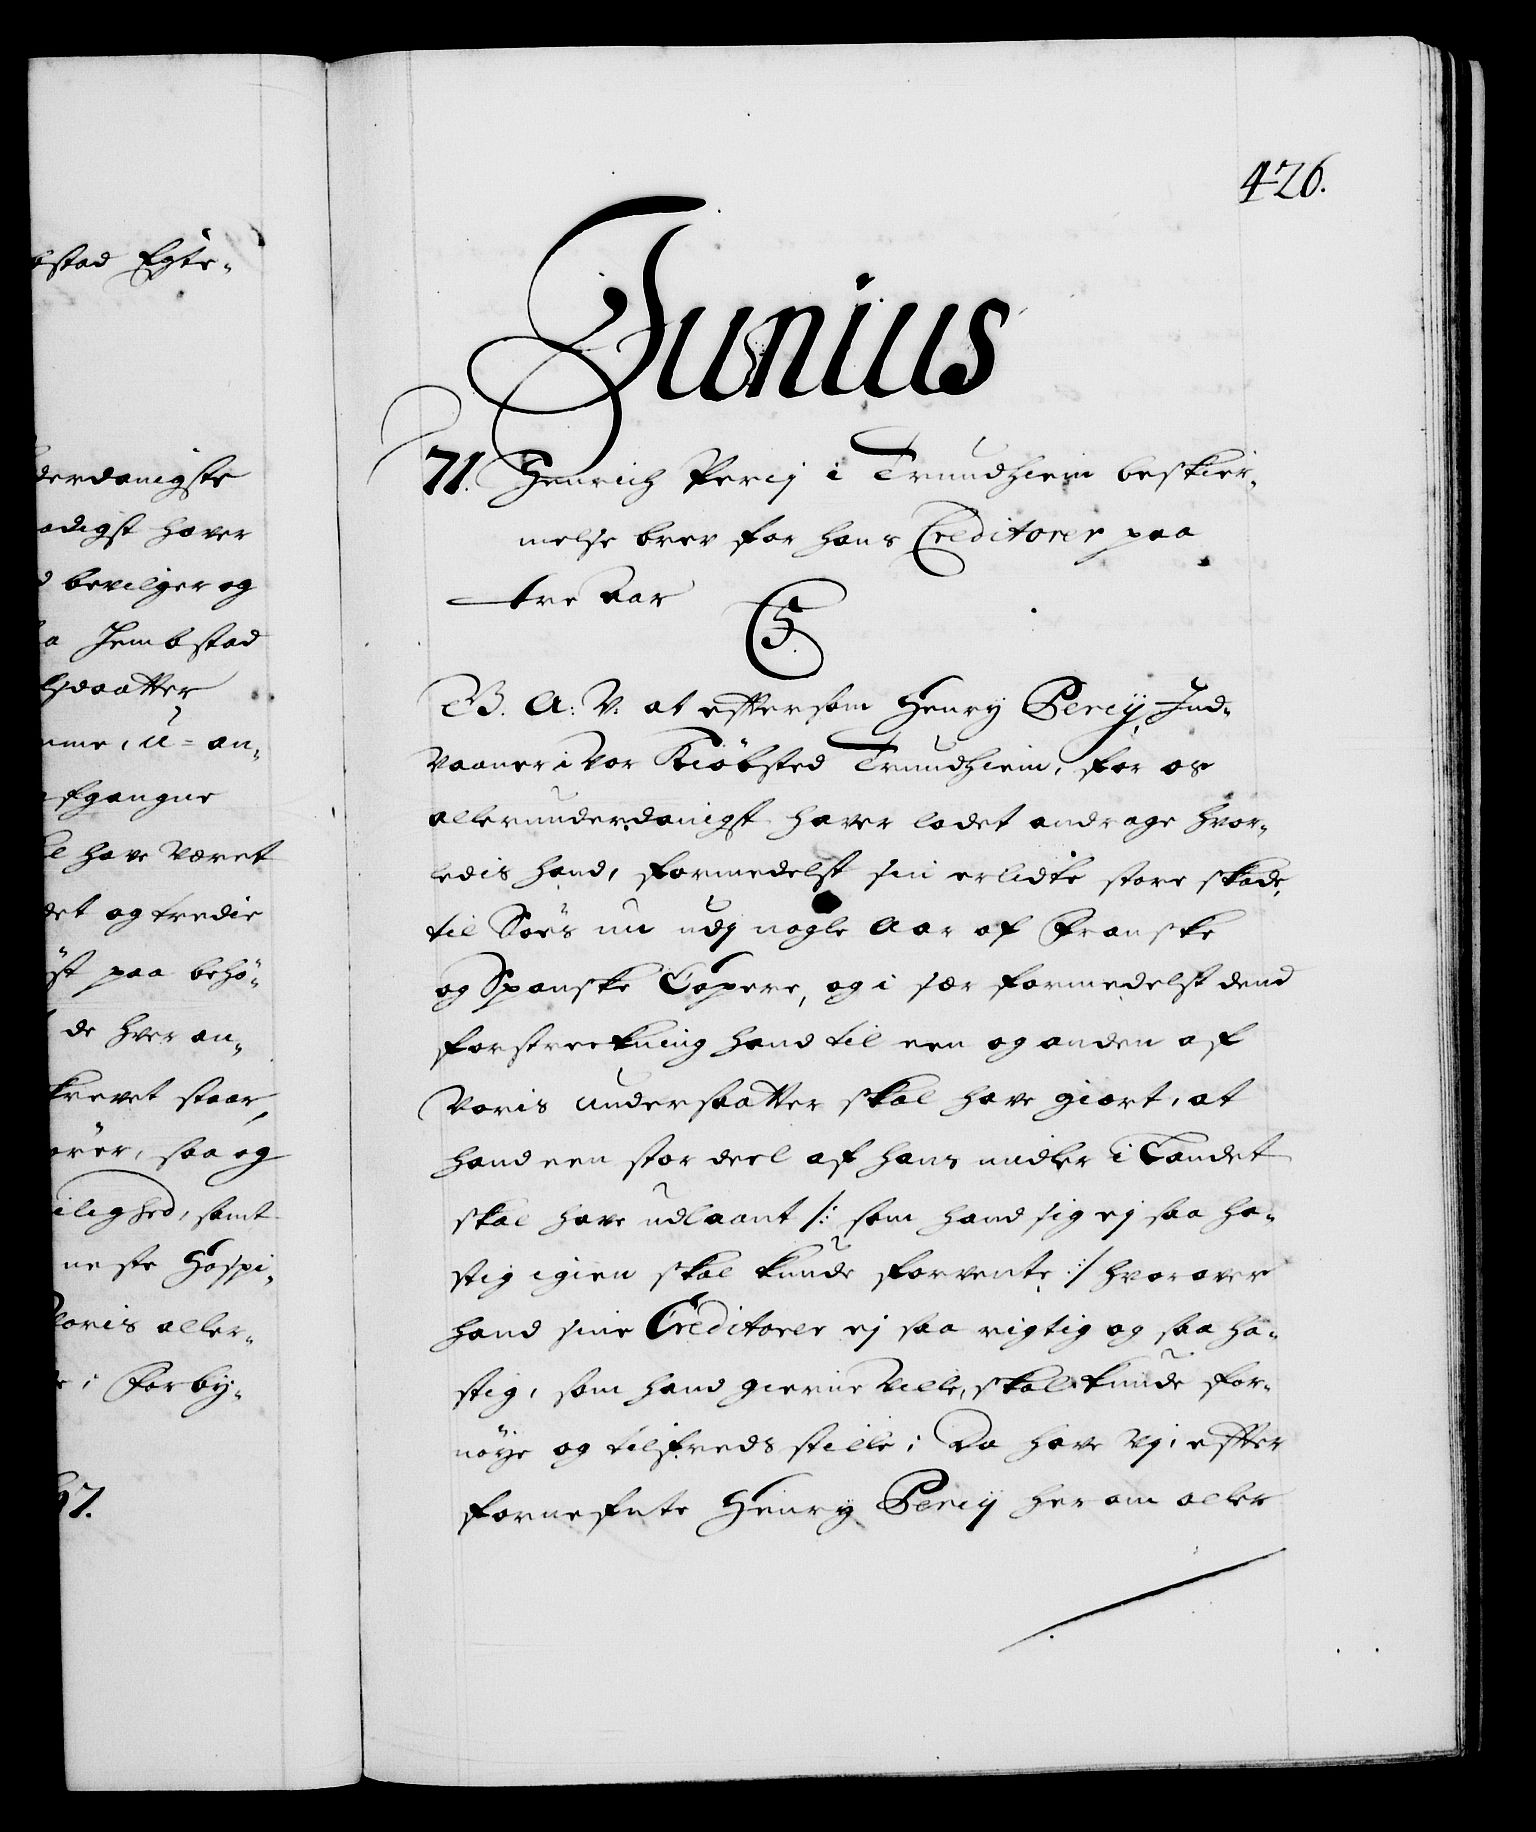 bstad Egte-
derdanigste
adigst haver
d bevilger og
a Jembstad
lsdaatter
mme, u-an-
fgangne
l have været
det og tredie
öst paa behö-
de hver an-
krevet staar,
arver, saa og
ilighed, samt
neste Hospi-
Voris aller-
i Forby-
97.
426.
Junius
71. Henrich Percij i Trundhiem beskier-
melse brev for hans Creditorer paa
tre Aar
C5.
B. A: V: at eftersom Henry Percÿ, Ind-
vaaner i vor Kiöbsted Trundhiem, for os
allerunderdanigst haver ladet andrage hvor-
ledis hand, formedelst sin erlidte store skade,
til Söes nu udj nogle Aar af Franske
og Spanske Capere, og i sær formedelst dend
forstreckning hand til een og anden af
Voris undersaatter skal have giort, at
hand een stor deel af hans midler i Landet
skal have udlaant /: som hand sig ej saa ha-
stig igien skal kunde forvente :/ hvorover
hand sine Creditorer ej saa rigtig og saa ha-
stig, som hand gierne ville, skal kunde for-
nöÿe og tilfreds stille; Da have Vj, efter
fornefnte Henry Percÿ her om aller